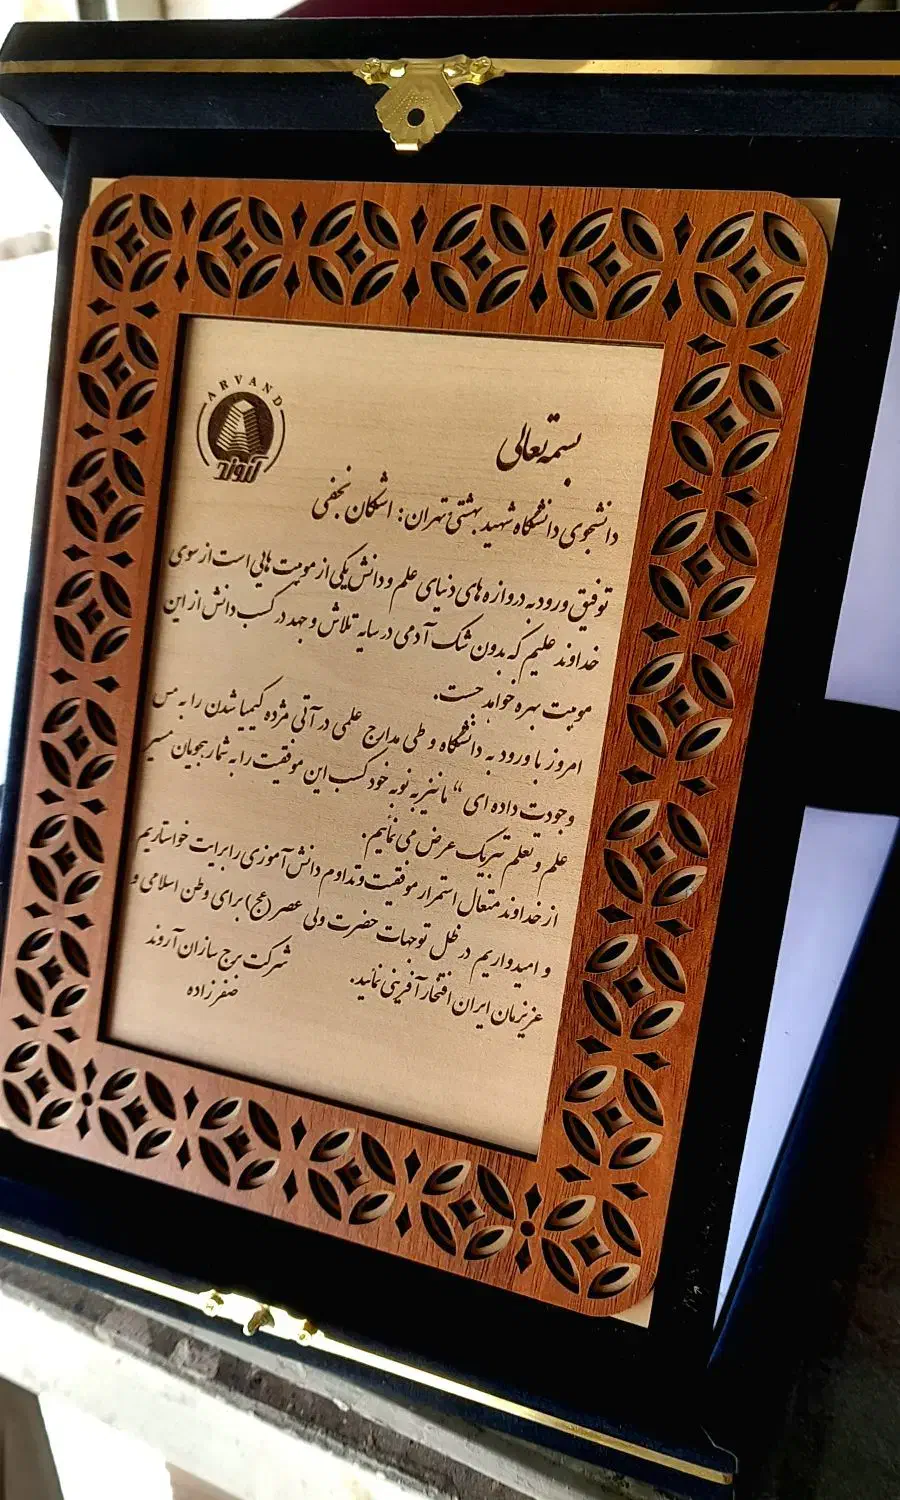 ARVAND
آروند
بسمه تعالی
دانشجوی دانشگاه شهید بهشتی تهران: اشکان نجفی
توفیق ورود به دروازه های دنیای علم و دانش یکی از موهبت هایی است از سوی
خداوند علیم که بدون شک آدمی در سایه تلاش و جهد در کسب دانش از این
موهبت بهره خواهد جست.
امروز با ورود به دانشگاه و طی مدارج علمی در آتی مژده کیمیا شدن را به مس
وجودت داده ای “ ما نیز به نوبه خود کسب این موفقیت را به شما رهجویان مسیر
علم و تعلم تبریک عرض می نمائیم.
از خداوند متعال استمرار موفقیت و تداوم دانش آموزی را برایت خواستاریم
و امیدواریم در ظل توجهات حضرت ولی عصر (عج) برای وطن اسلامی و
عزیزمان ایران افتخار آفرینی نمائید.
شرکت برج سازان آروند
صفرزاده